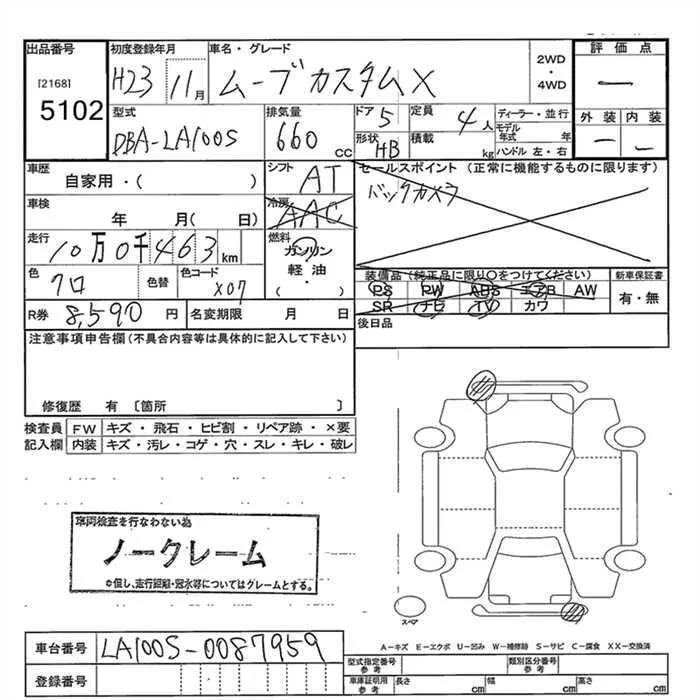 出品番号
[2168]
5102
初度登録年月
H23 11月
車名・グレード
ムーブカスタムX
2WD・
4WD
評価点
一
外装 内装
一 一
型式
DBA-LA100S
排気量
660 cc
ドア 5
形状 HB
定員 4人
積載 kg
ディーラー・並行
モデル
年式 年
ハンドル 左・右
車歴
自家用・( )
シフト AT
車検
年 月( 日)
冷房 AAC
走行
10万0千463km
燃料
ガソリン
軽・油
( ・ )
色 クロ
色替
色コード X07
R券 8,590 円
名変期限 月 日
セールスポイント (正常に機能するものに限ります)
バックカメラ
装備品 (純正品に限り○をつけてください)
PS PW ABS エアB AW
SR ナビ TV カワ
新車保証書
有・無
後日品
注意事項申告欄(不具合内容等は具体的に記入して下さい)
修復歴 有 〔箇所 〕
検査員
記入欄
FW キズ・飛石・ヒビ割・リペア跡・×要
内装 キズ・汚レ・コゲ・穴・スレ・キレ・破レ
車両検査を行なわない為
ノークレーム
○但し、走行距離・冠水等についてはクレームとする。
スペア
A-キズ E-エクボ U-凹み W-補修跡 S-サビ C-腐食 XX-交換済
車台番号 LA100S-0087959
登録番号
型式指定番号
参考
類別区分番号
参考
車庫証明用
参考
長さ cm 幅 cm 高さ cm